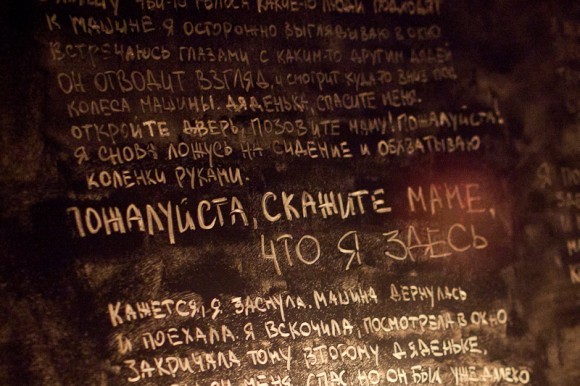 чьи-то голоса какие-то люди подходят
к машине я осторожно выглядываю в окно
встречаюсь глазами с каким-то другим дядей
он отводит взгляд, и смотрит куда-то вниз под
колеса машины. дяденька, спасите меня.
откройте дверь, позовите маму! пожалуйста!
я снова ложусь на сидение и обхватываю
коленки руками.
пожалуйста, скажите маме,
что я здесь
кажется, я заснула. машина дернулась
и поехала. я вскочила, посмотрела в окно
закричала тому второму дяденьке,
меня спас но он был уже далеко